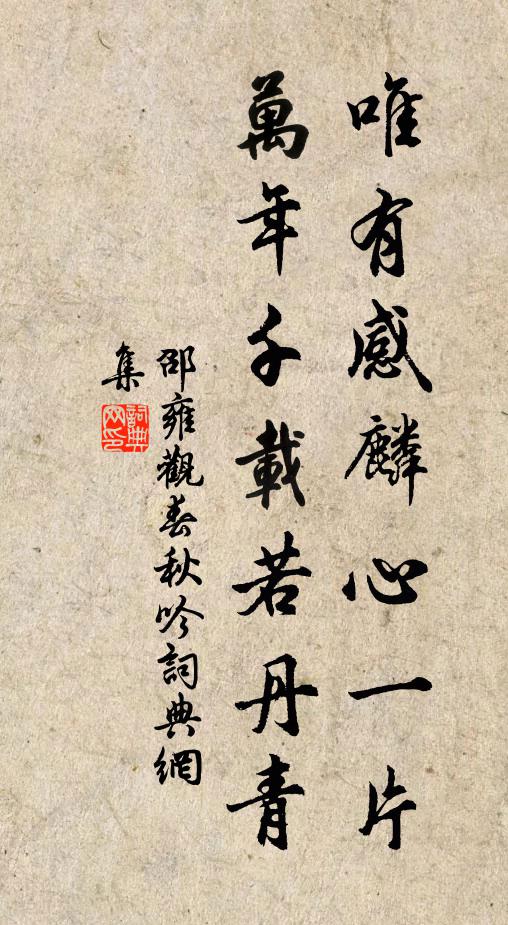 唯有感麟心一片
萬年千載若丹青
邵雍觀春秋吟詞典網
集
詞典
网印